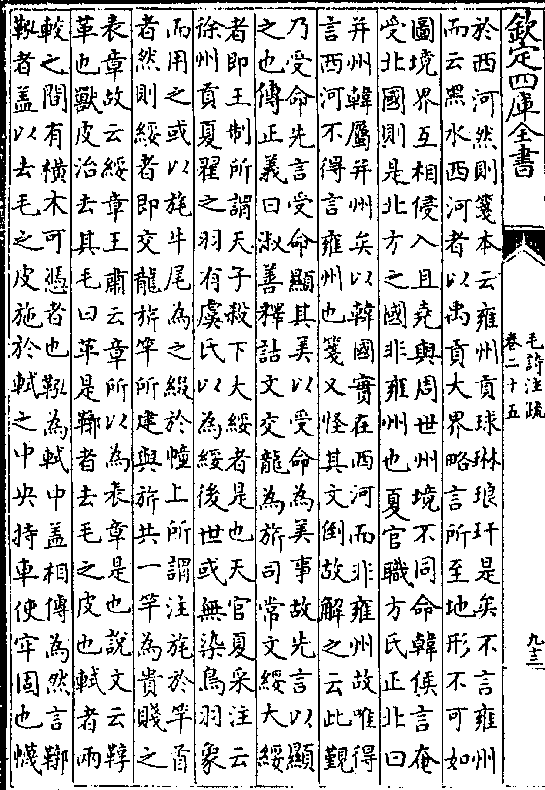 欽定四庫全書
毛詩注疏
卷二十五
九三
於西河然則箋本云雍州貢球琳琅玕是矣不言雍州
而云黑水西河者以禹貢大界略言所至地形不可如
圖境界互相侵入且堯與周世州境不同命韓侯言奄
受北國則是北方之國非雍州也夏官職方氏正北曰
并州韓屬并州矣以韓國實在西河而非雍州故唯得
言西河不得言雍州也箋又怪其文倒故解之云此覲
乃受命先言受命顯其美以受命為美事故先言以顯
之也傳正義曰淑善釋詁文交龍為旂司常文綏大綏
者即王制所謂天子殺下大綏者是也天官夏采注云
徐州貢夏翟之羽有虞氏以為綏後世或無染鳥羽象
而用之或以旄牛尾為之綴於幢上所謂注旄於竿首
者然則綏者即交龍旂竿所建與旂共一竿為貴賤之
表章故云綏章王肅云章所以為表章是也說文云鞹
革也獸皮治去其毛曰革是鞹者去毛之皮也軾者兩
較之間有橫木可憑者也鞃為軾中蓋相傳為然言鞹
鞃者蓋以去毛之皮施於軾之中央持車使牢固也幭